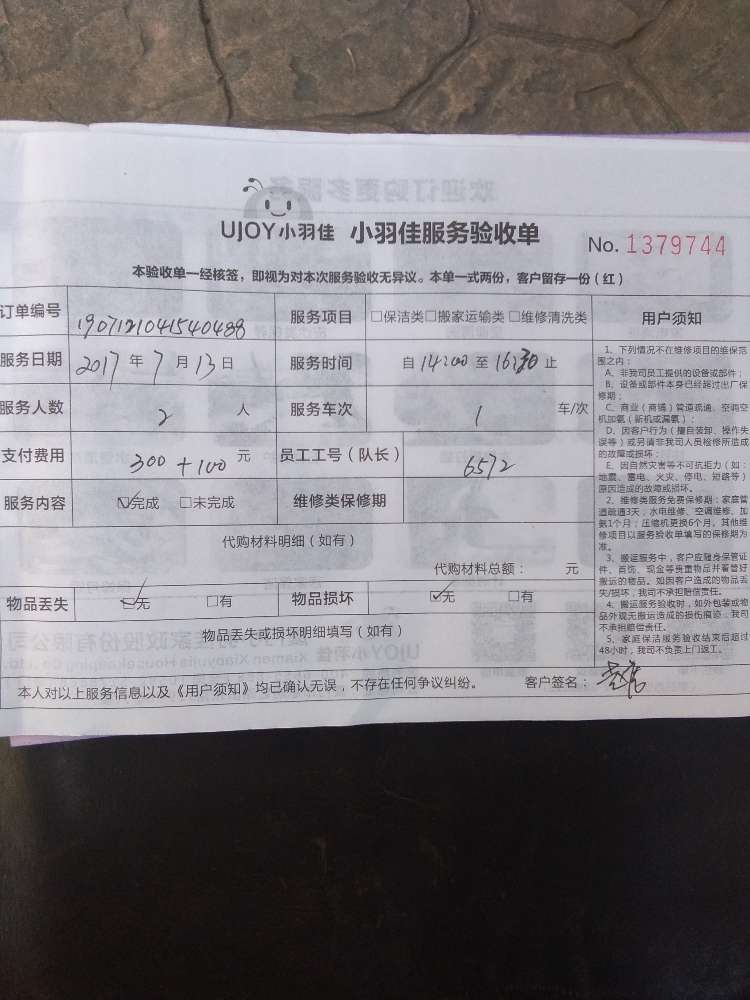 UJOY小羽佳 小羽佳服务验收单
No. 1379744
本验收单一经核签，即视为对本次服务验收无异议。本单一式两份，客户留存一份（红）
订单编号 1907121041540488 服务项目 □保洁类□搬家运输类□维修清洗类
服务日期 2017 年 7 月 13 日 服务时间 自 14:00 至 16:30 止
服务人数 2 人 服务车次 1 车/次
支付费用 300+100 元 员工工号（队长） 6572
服务内容 ☑完成 □未完成 维修类保修期
代购材料明细（如有）
代购材料总额： 元
物品丢失 ☑无 □有 物品损坏 ☑无 □有
物品丢失或损坏明细填写（如有）
本人对以上服务信息以及《用户须知》均已确认无误，不存在任何争议纠纷。 客户签名：
用户须知
1、下列情况不在维修项目的维保范
围之内：
A、非我司员工提供的设备或部件；
B、设备或部件本身已经超过出厂保
修期；
C、商业（商铺）管道疏通、空调空
机加氨（新机或漏氨）；
D、因客户行为（擅自装卸、操作失
误等）或另请非我司人员检修所造成
的故障或损坏；
E、因自然灾害等不可抗拒力（如：
地震、雷电、火灾、停电、短路等）
原因造成的故障或损坏。
2、维修类服务免费保修期：家庭管
道疏通3天；水电维修、空调维修、加
氨1个月；压缩机更换6个月，其他维
修项目以服务验收单填写的保修期为
准。
3、搬运服务中，客户应随身保管证
件、首饰、现金等贵重物品并看管好
搬运的物品。如因客户造成的物品丢
失/损坏，我司不承担赔偿责任。
4、搬运服务验收时，如外包装或物
品外观无搬运造成的损伤痕迹，我司
不承担赔偿责任。
5、家庭保洁服务验收结束后超过
48小时，我司不负责上门返工。